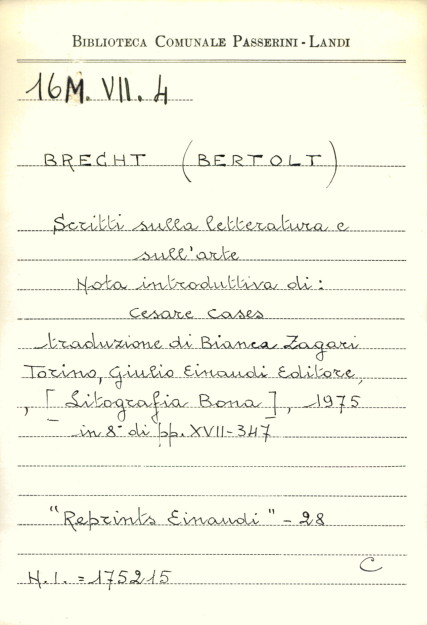 BIBLIOTECA COMUNALE PASSERINI - LANDI
16M. VII. 4
BRECHT (BERTOLT)
Scritti sulla letteratura e
sull'arte
Nota introduttiva di:
Cesare Cases
traduzione di Bianca Zagari
Torino, Giulio Einaudi Editore,
, [ Litografia Bona ] , 1975
in 8° di pp. XVII-347
"Reprints Einaudi" - 28
C
N.I. = 175215